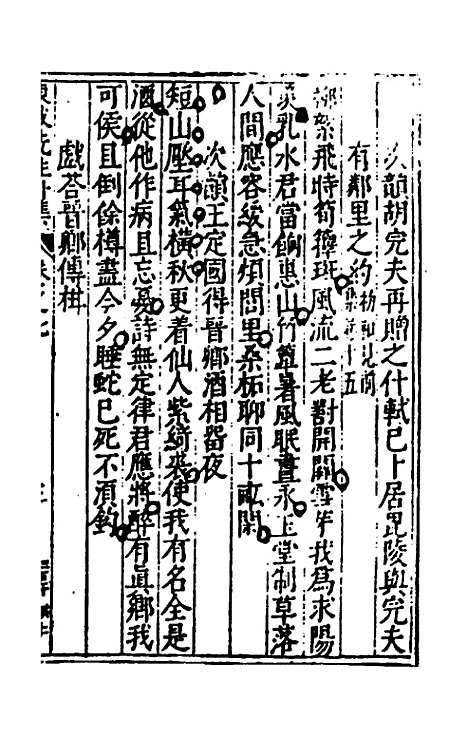 次韻胡完夫再贈之什軾已卜居毘陵與完夫
有鄰里之約
柳絮飛時筍籜斑風流二老對開關雪芽我為求陽
羨乳水君當餉惠山竹簟暑風眠晝永玉堂制草落
人間應容緩急煩閭里桑柘聊同十畝閑
次韻王定國得晉卿酒相留夜
短山壓耳氣橫秋更着仙人紫綺裘使我有名全是
酒從他作病且忘憂詩無定律君應將醉有真鄉我
可侯且倒餘樽盡今夕睡蛇已死不須鈎
戲荅晉卿傳柑
東坡先生詩集